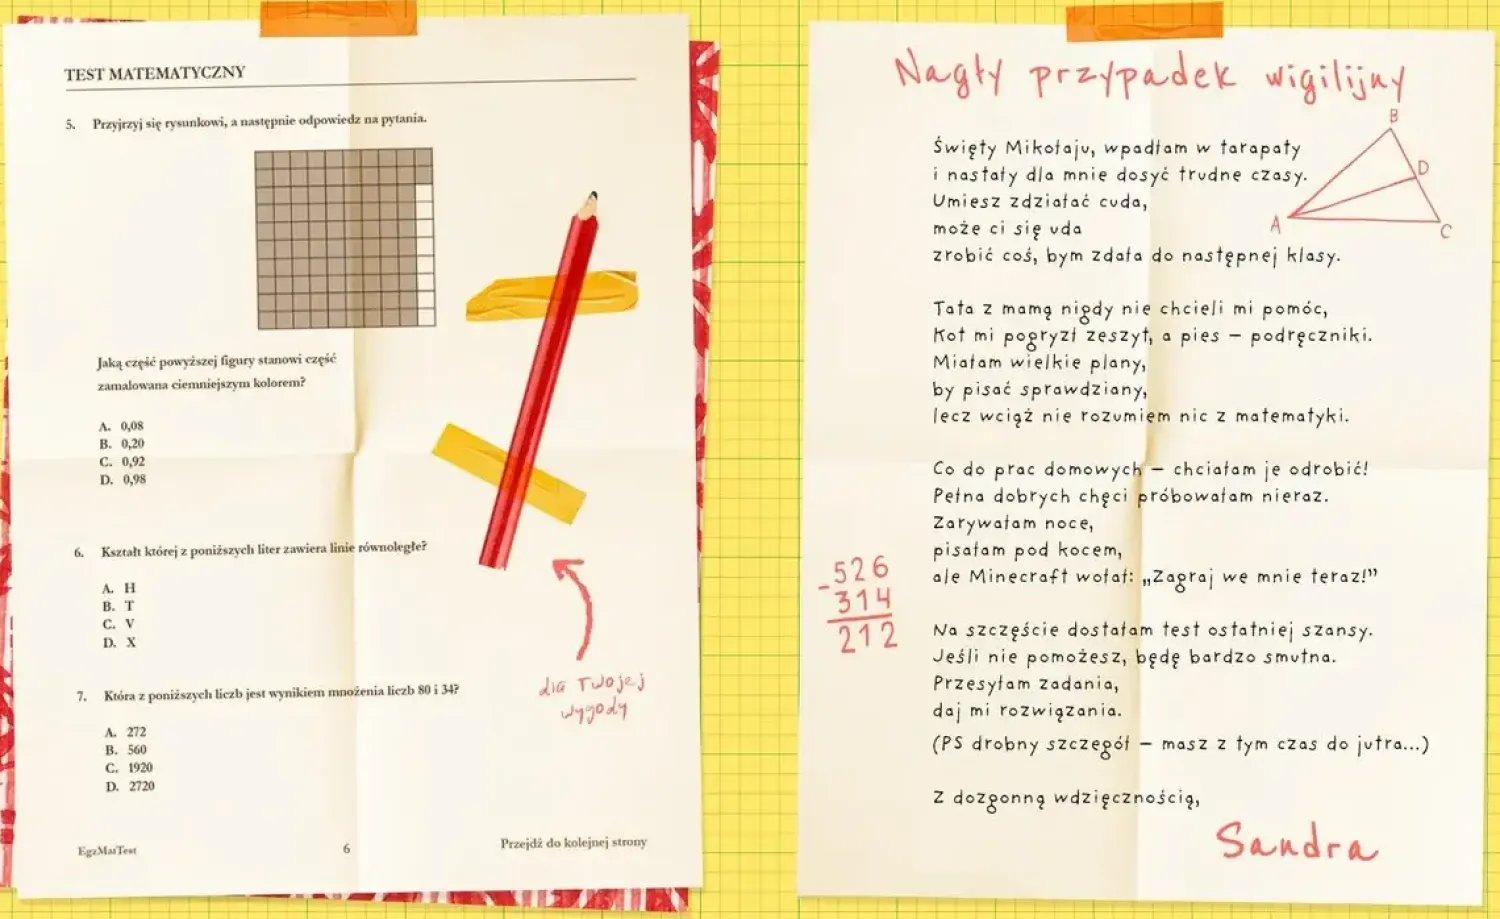 TEST MATEMATYCZNY
5. Przyjrzyj się rysunkowi, a następnie odpowiedz na pytania.
Jaką część powyższej figury stanowi część
zamalowana ciemniejszym kolorem?
A. 0,08
B. 0,20
C. 0,92
D. 0,98
6. Kształt której z poniższych liter zawiera linie równoległe?
A. H
B. T
C. V
D. X
7. Która z poniższych liczb jest wynikiem mnożenia liczb 80 i 34?
A. 272
B. 560
C. 1920
D. 2720
dla Twojej
wygody
EgzMatTest
6
Przejdź do kolejnej strony
Nagły przypadek wigilijny
B
D
A
C
Święty Mikołaju, wpadłam w tarapaty
i nastały dla mnie dosyć trudne czasy.
Umiesz zdziałać cuda,
może ci się uda
zrobić coś, bym zdała do następnej klasy.
Tata z mamą nigdy nie chcieli mi pomóc,
Kot mi pogryzł zeszyt, a pies – podręczniki.
Miałam wielkie plany,
by pisać sprawdziany,
lecz wciąż nie rozumiem nic z matematyki.
Co do prac domowych – chciałam je odrobić!
Pełna dobrych chęci próbowałam nieraz.
Zarywałam noce,
pisałam pod kocem,
ale Minecraft wołał: „Zagraj we mnie teraz!”
-526
314
212
Na szczęście dostałam test ostatniej szansy.
Jeśli nie pomożesz, będę bardzo smutna.
Przesyłam zadania,
daj mi rozwiązania.
(PS drobny szczegół – masz z tym czas do jutra...)
Z dozgonną wdzięcznością,
Sandra